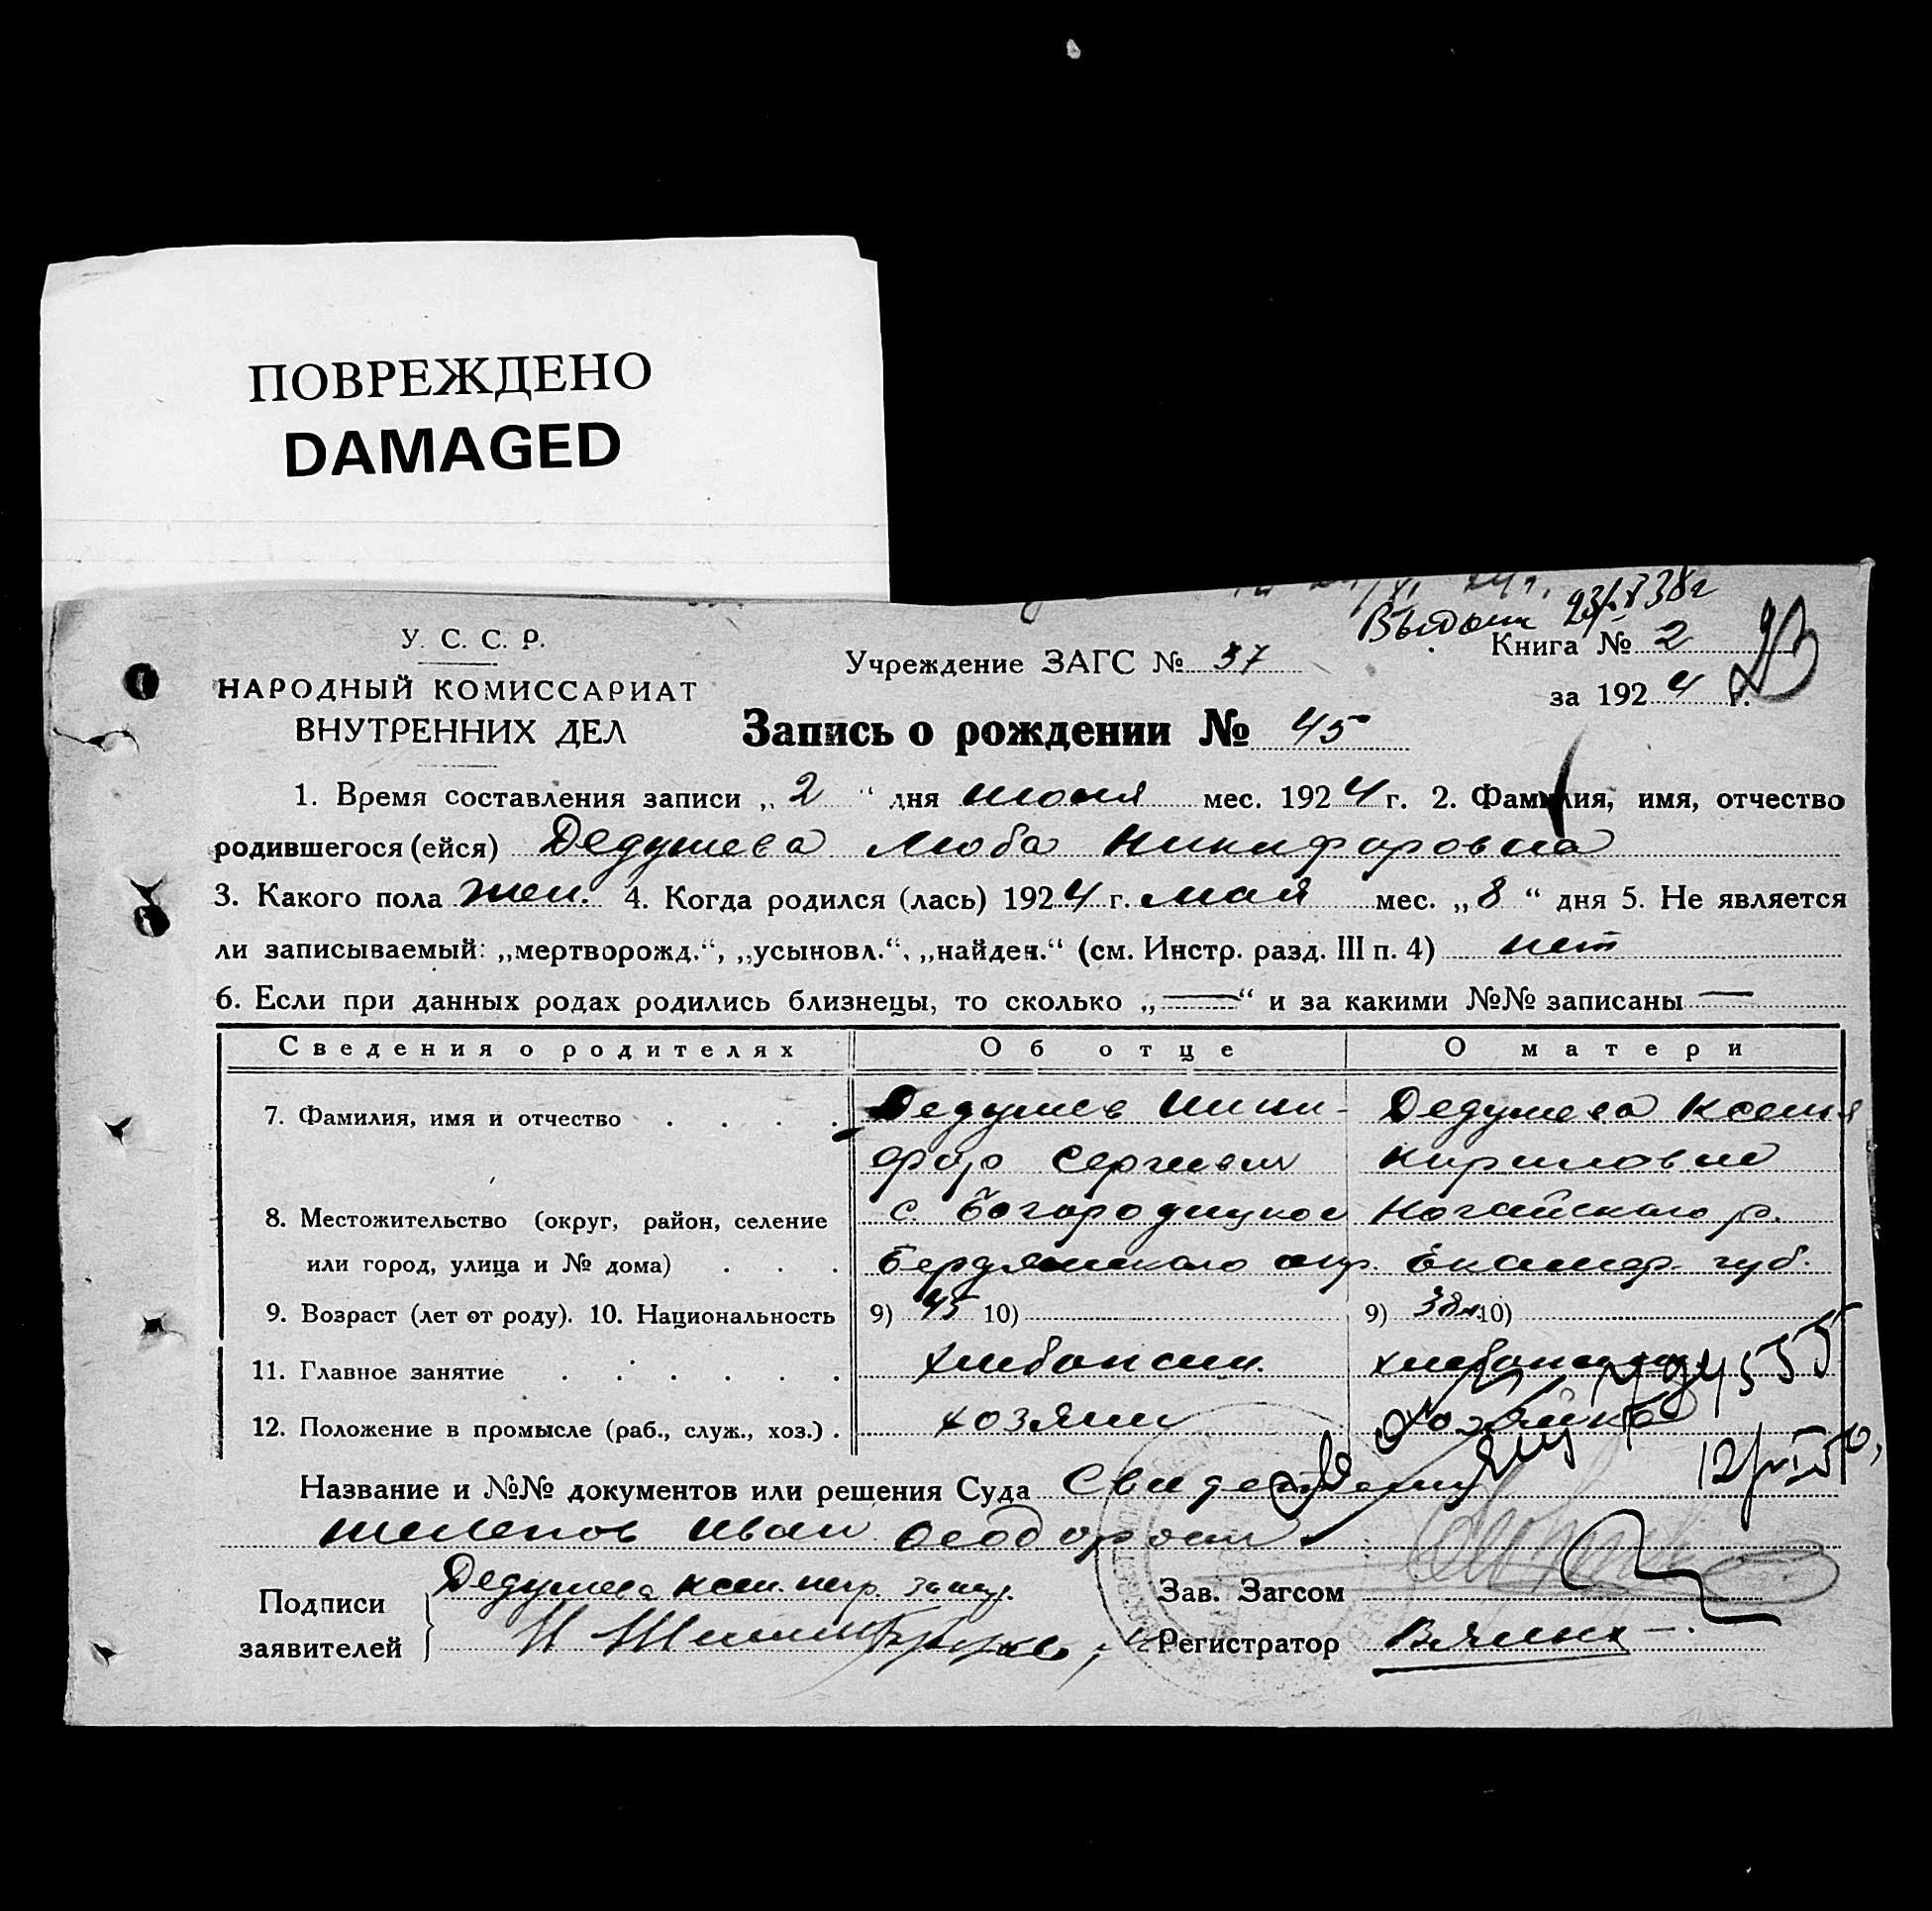 ПОВРЕЖДЕНО
DAMAGED
У. С. С. Р.
НАРОДНЫЙ КОМИССАРИАТ
ВНУТРЕННИХ ДЕЛ
Учреждение ЗАГС № 37
Книга № 2
за 1924 г.
23
Запись о рождении № 45
1. Время составления записи „2“ дня июня мес. 1924 г. 2. Фамилия, имя, отчество
родившегося (ейся) Дедушева Люба Никифоровна
3. Какого пола жен. 4. Когда родился (лась) 1924 г. мая мес. „8“ дня 5. Не является
ли записываемый: „мертворожд.“, „усыновл.“, „найден.“ (см. Инстр. разд. III п. 4) нет
6. Если при данных родах родились близнецы, то сколько „—“ и за какими №№ записаны —
Сведения о родителях Об отце О матери
7. Фамилия, имя и отчество . . . . Дедушев Ники- Дедушева Ксения
фор Сергеевич Кириловна
8. Местожительство (округ, район, селение с. Богородицкое Ногайского р.
или город, улица и № дома) . . . Бердянского окр. Екатер. губ.
9. Возраст (лет от роду). 10. Национальность 9) 45 10) 9) 38 10)
11. Главное занятие . . . . . . хлебопаш.
12. Положение в промысле (раб., служ., хоз.) . хозяин хозяйка
Название и №№ документов или решения Суда
Иван
Подписи
заявителей
Дедушева Ксен. негр.
Зав. Загсом
Регистратор